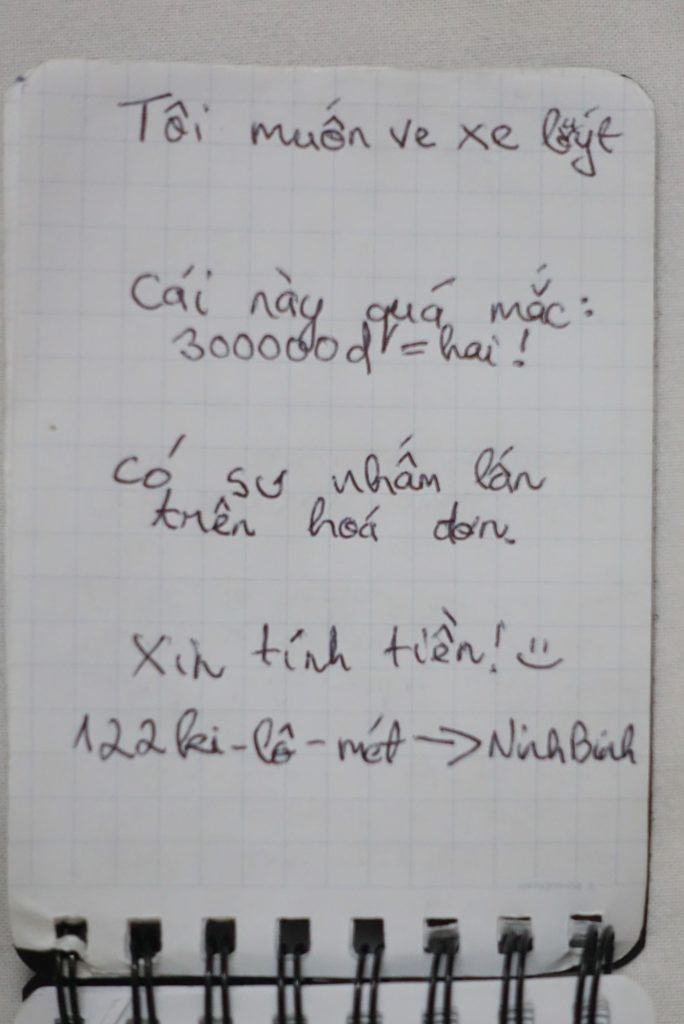 Tôi muốn ve xe
Cái này quá mắc:
300000đ = hai!
Có sư nhấm lán
trên hoá đơn.
Xin tính tiền! :)
122 ki-lô-mét → Ninh Binh